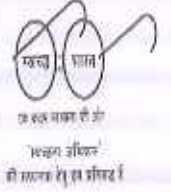 स्वच्छ भारत
एक कदम स्वच्छता की ओर
'स्वच्छता अभियान'
की सफलता हेतु हम प्रतिबद्ध हैं